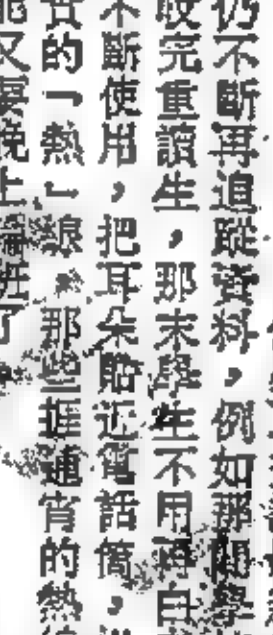 仍不斷再追蹤資料，例如那間學
完重讀生，那末學生不用再白
不斷使用，把耳朵貼近電話筒，
的「熱」線。那些捱通宵的熱
能又要晚上輪班了